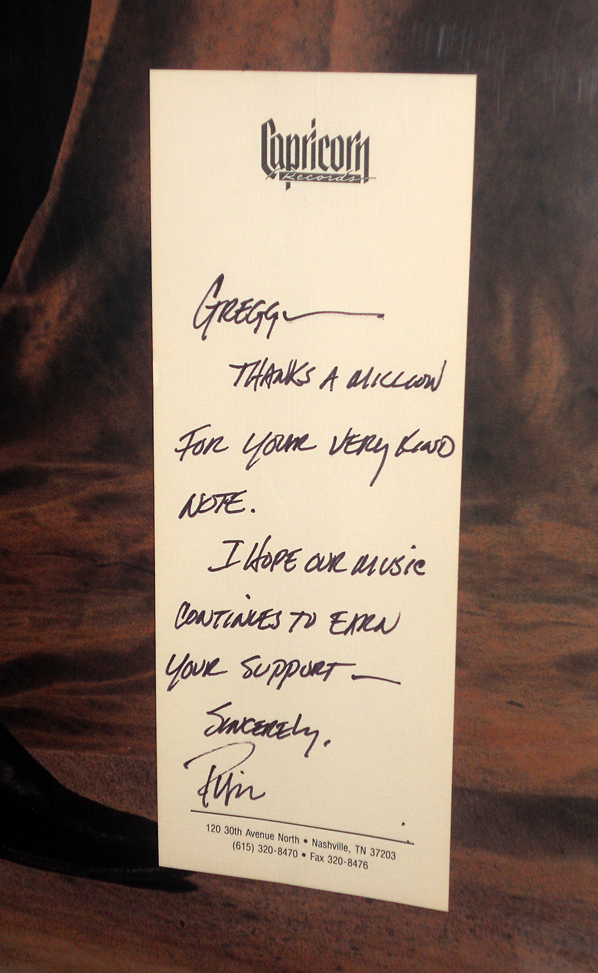 Capricorn
Records
GREGG—
THANKS A MILLION
FOR YOUR VERY KIND
NOTE.
I HOPE OUR MUSIC
CONTINUES TO EARN
YOUR SUPPORT—
SINCERELY,
120 30th Avenue North • Nashville, TN 37203
(615) 320-8470 • Fax 320-8476